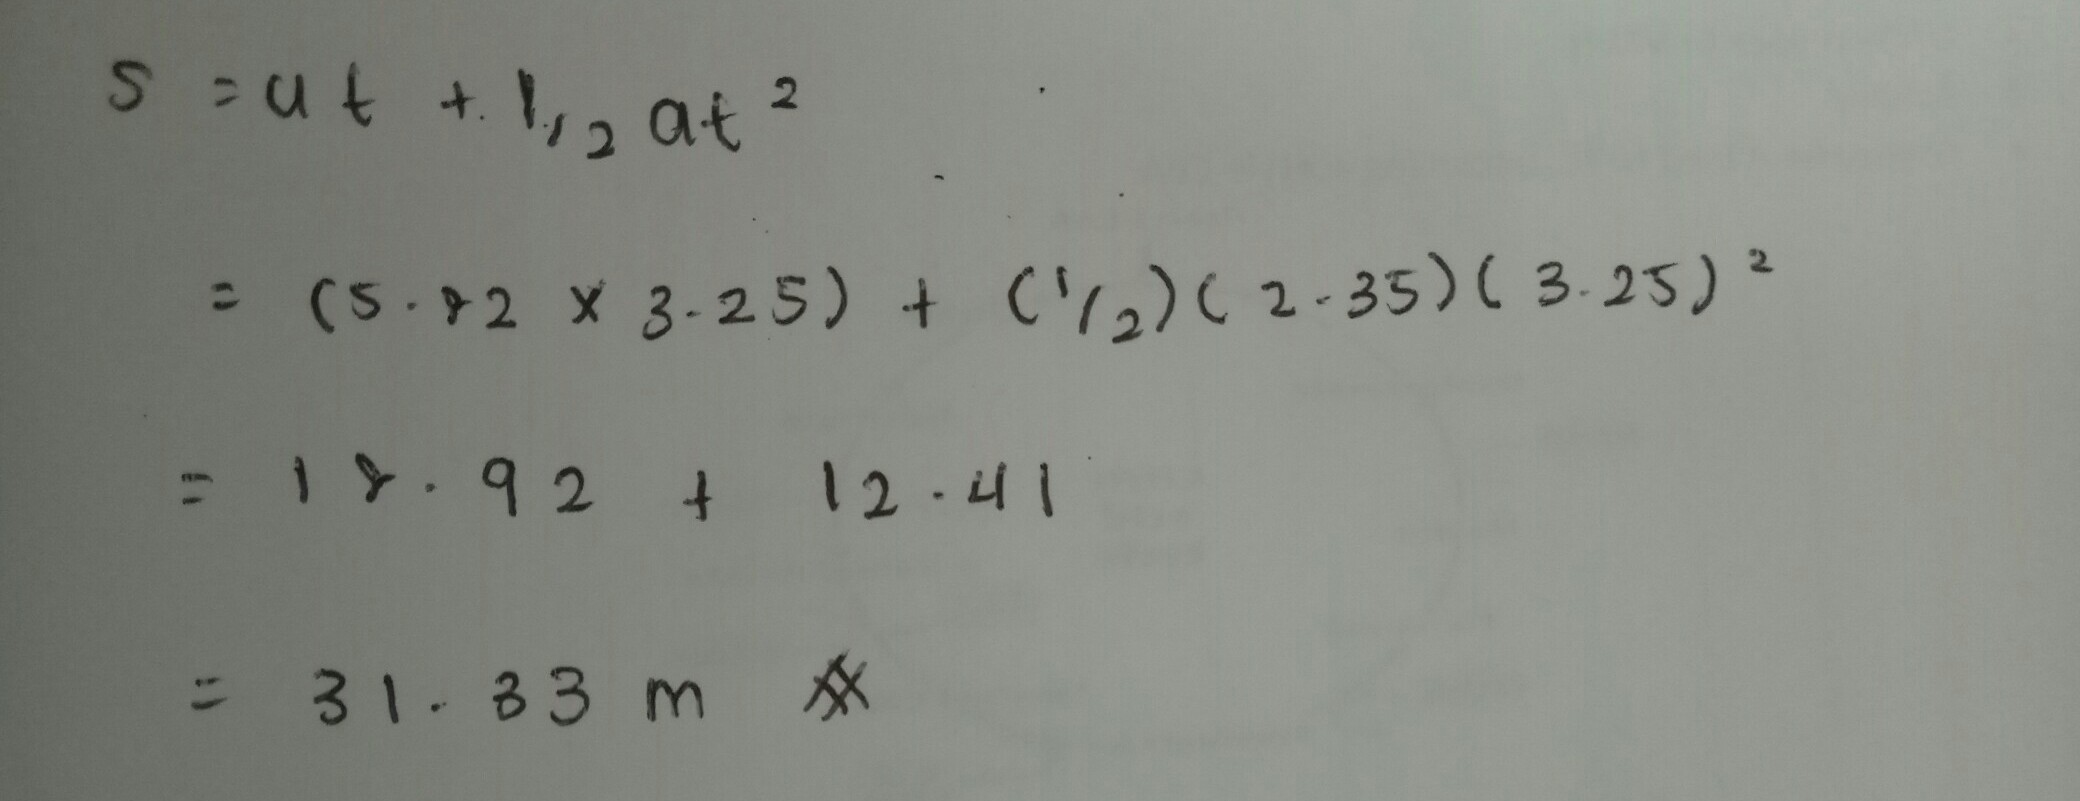 s = ut + 1/2 at²
= (5.82 x 3.25) + (1/2)(2.35)(3.25)²
= 18.92 + 12.41
= 31.33 m